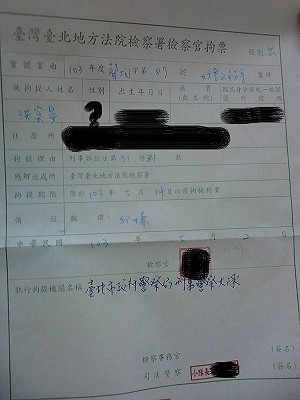 臺灣臺北地方法院檢察署檢察官拘票
股別 出
案號案由 103年度聲拘字第87號 妨害公務等 案件
被拘提人姓名 性別 出生年月日 籍貫(出生地) 國民身分證統一編號
洪崇晏 ?
住居所
拘提理由 刑事訴訟法第71條 款
應解送處所 臺灣臺北地方法院檢察署
拘提期限 限於103年5月14日以前拘提到案
備註
中華民國 103年5月2日
檢察官
執行拘提機關名稱 臺北市政府警察局刑事警察大隊
檢察事務官 (簽名)
司法警察 小隊長 (簽名)